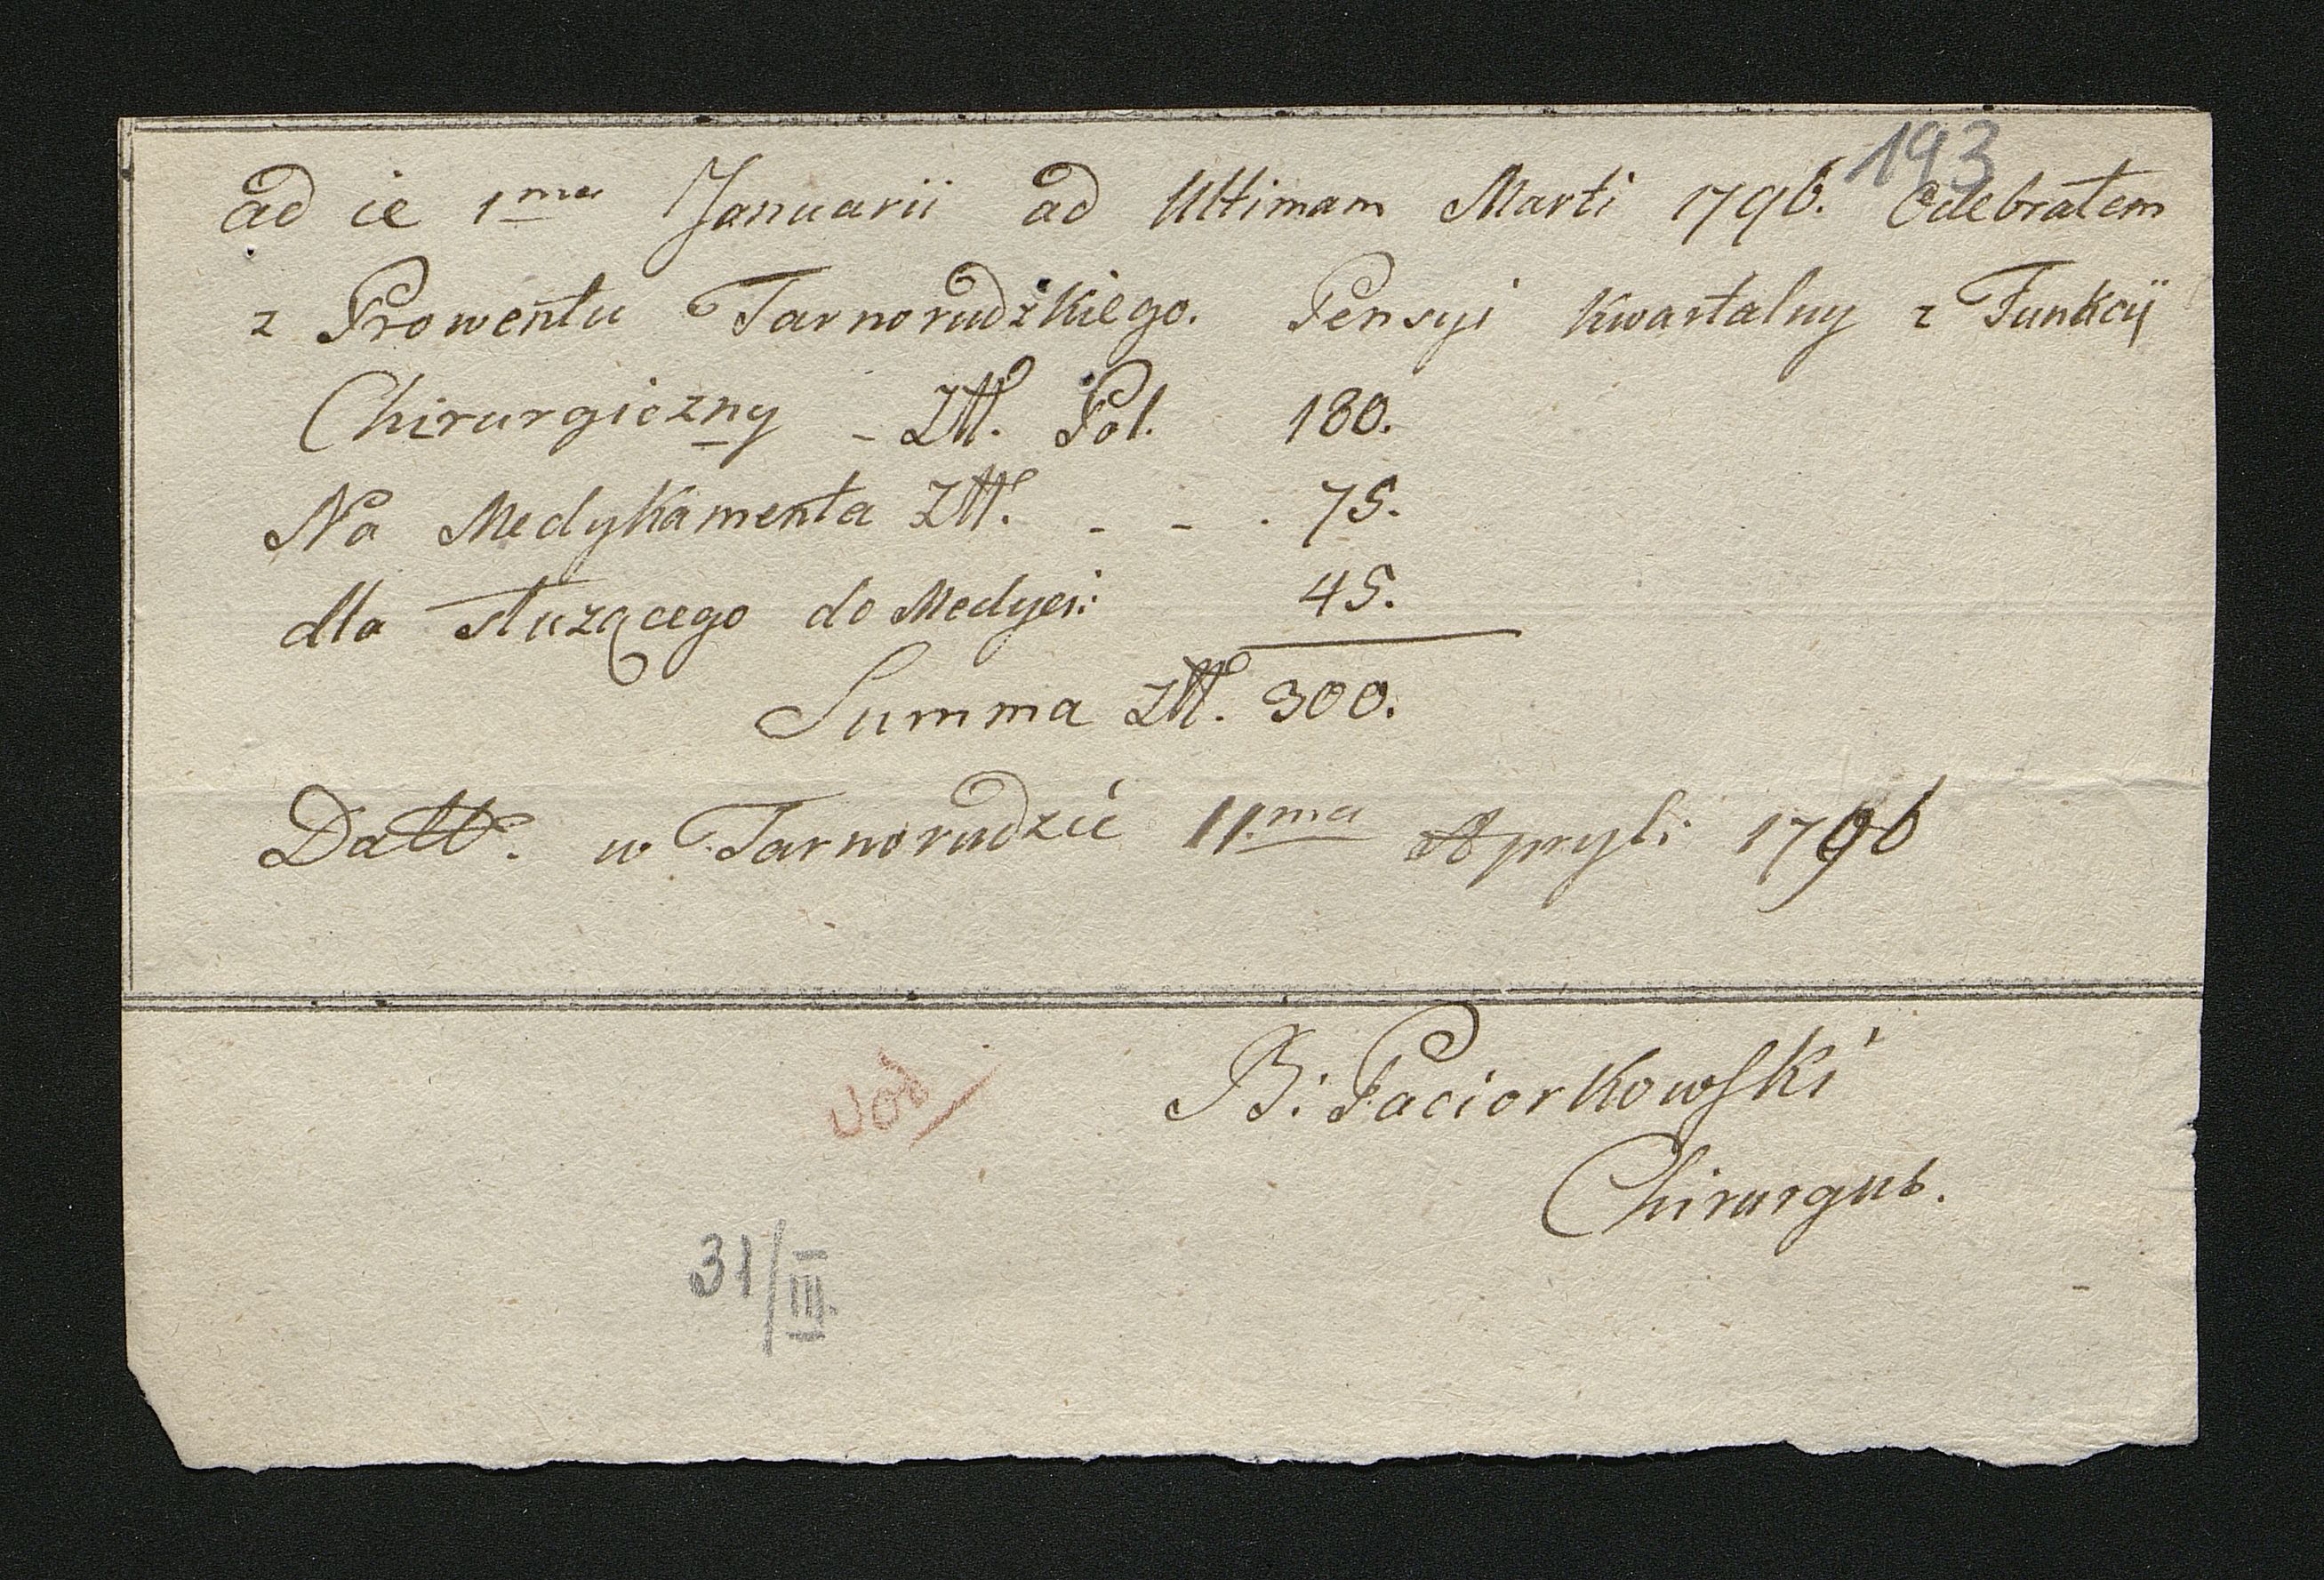 193
ad ie 1ma Januarii ad Ultimam Marti 1796. Odebrałem
z Prowentu Tarnorudzkiego. Pensyi Kwartalny z Funkcij
Chirurgiczny - Ztt. Pol. 180.
Na Medykamenta Ztt. - - . 75.
dla służącego do Medyci: 45.
Summa Ztt. 300.
Datt. w Tarnorudzie 11.ma Apryli 1796
B: Paciorkowski
Chirurgus.
31/III.